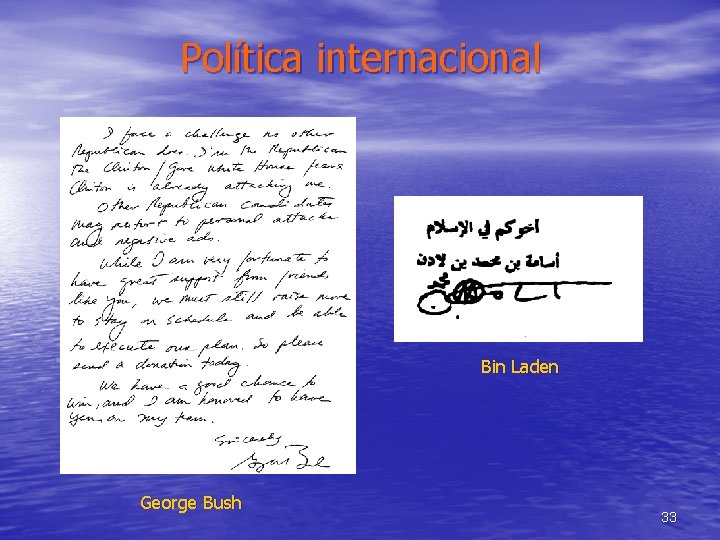 Política internacional
I face a challenge no other
Republican does. I'm the Republican
the Clinton/Gore White House fears
Clinton is already attacking me.
Other Republican candidates
may resort to personal attacks
and negative ads.
While I am very fortunate to
have great support from friends
like you, we must still raise more
to stay on schedule and be able
to execute our plan. So please
send a donation today.
We have a good chance to
win, and I am honored to have
you on my team.
Sincerely,
George Bush
أخوكم في الإسلام
أسامة بن محمد بن لادن
Bin Laden
33